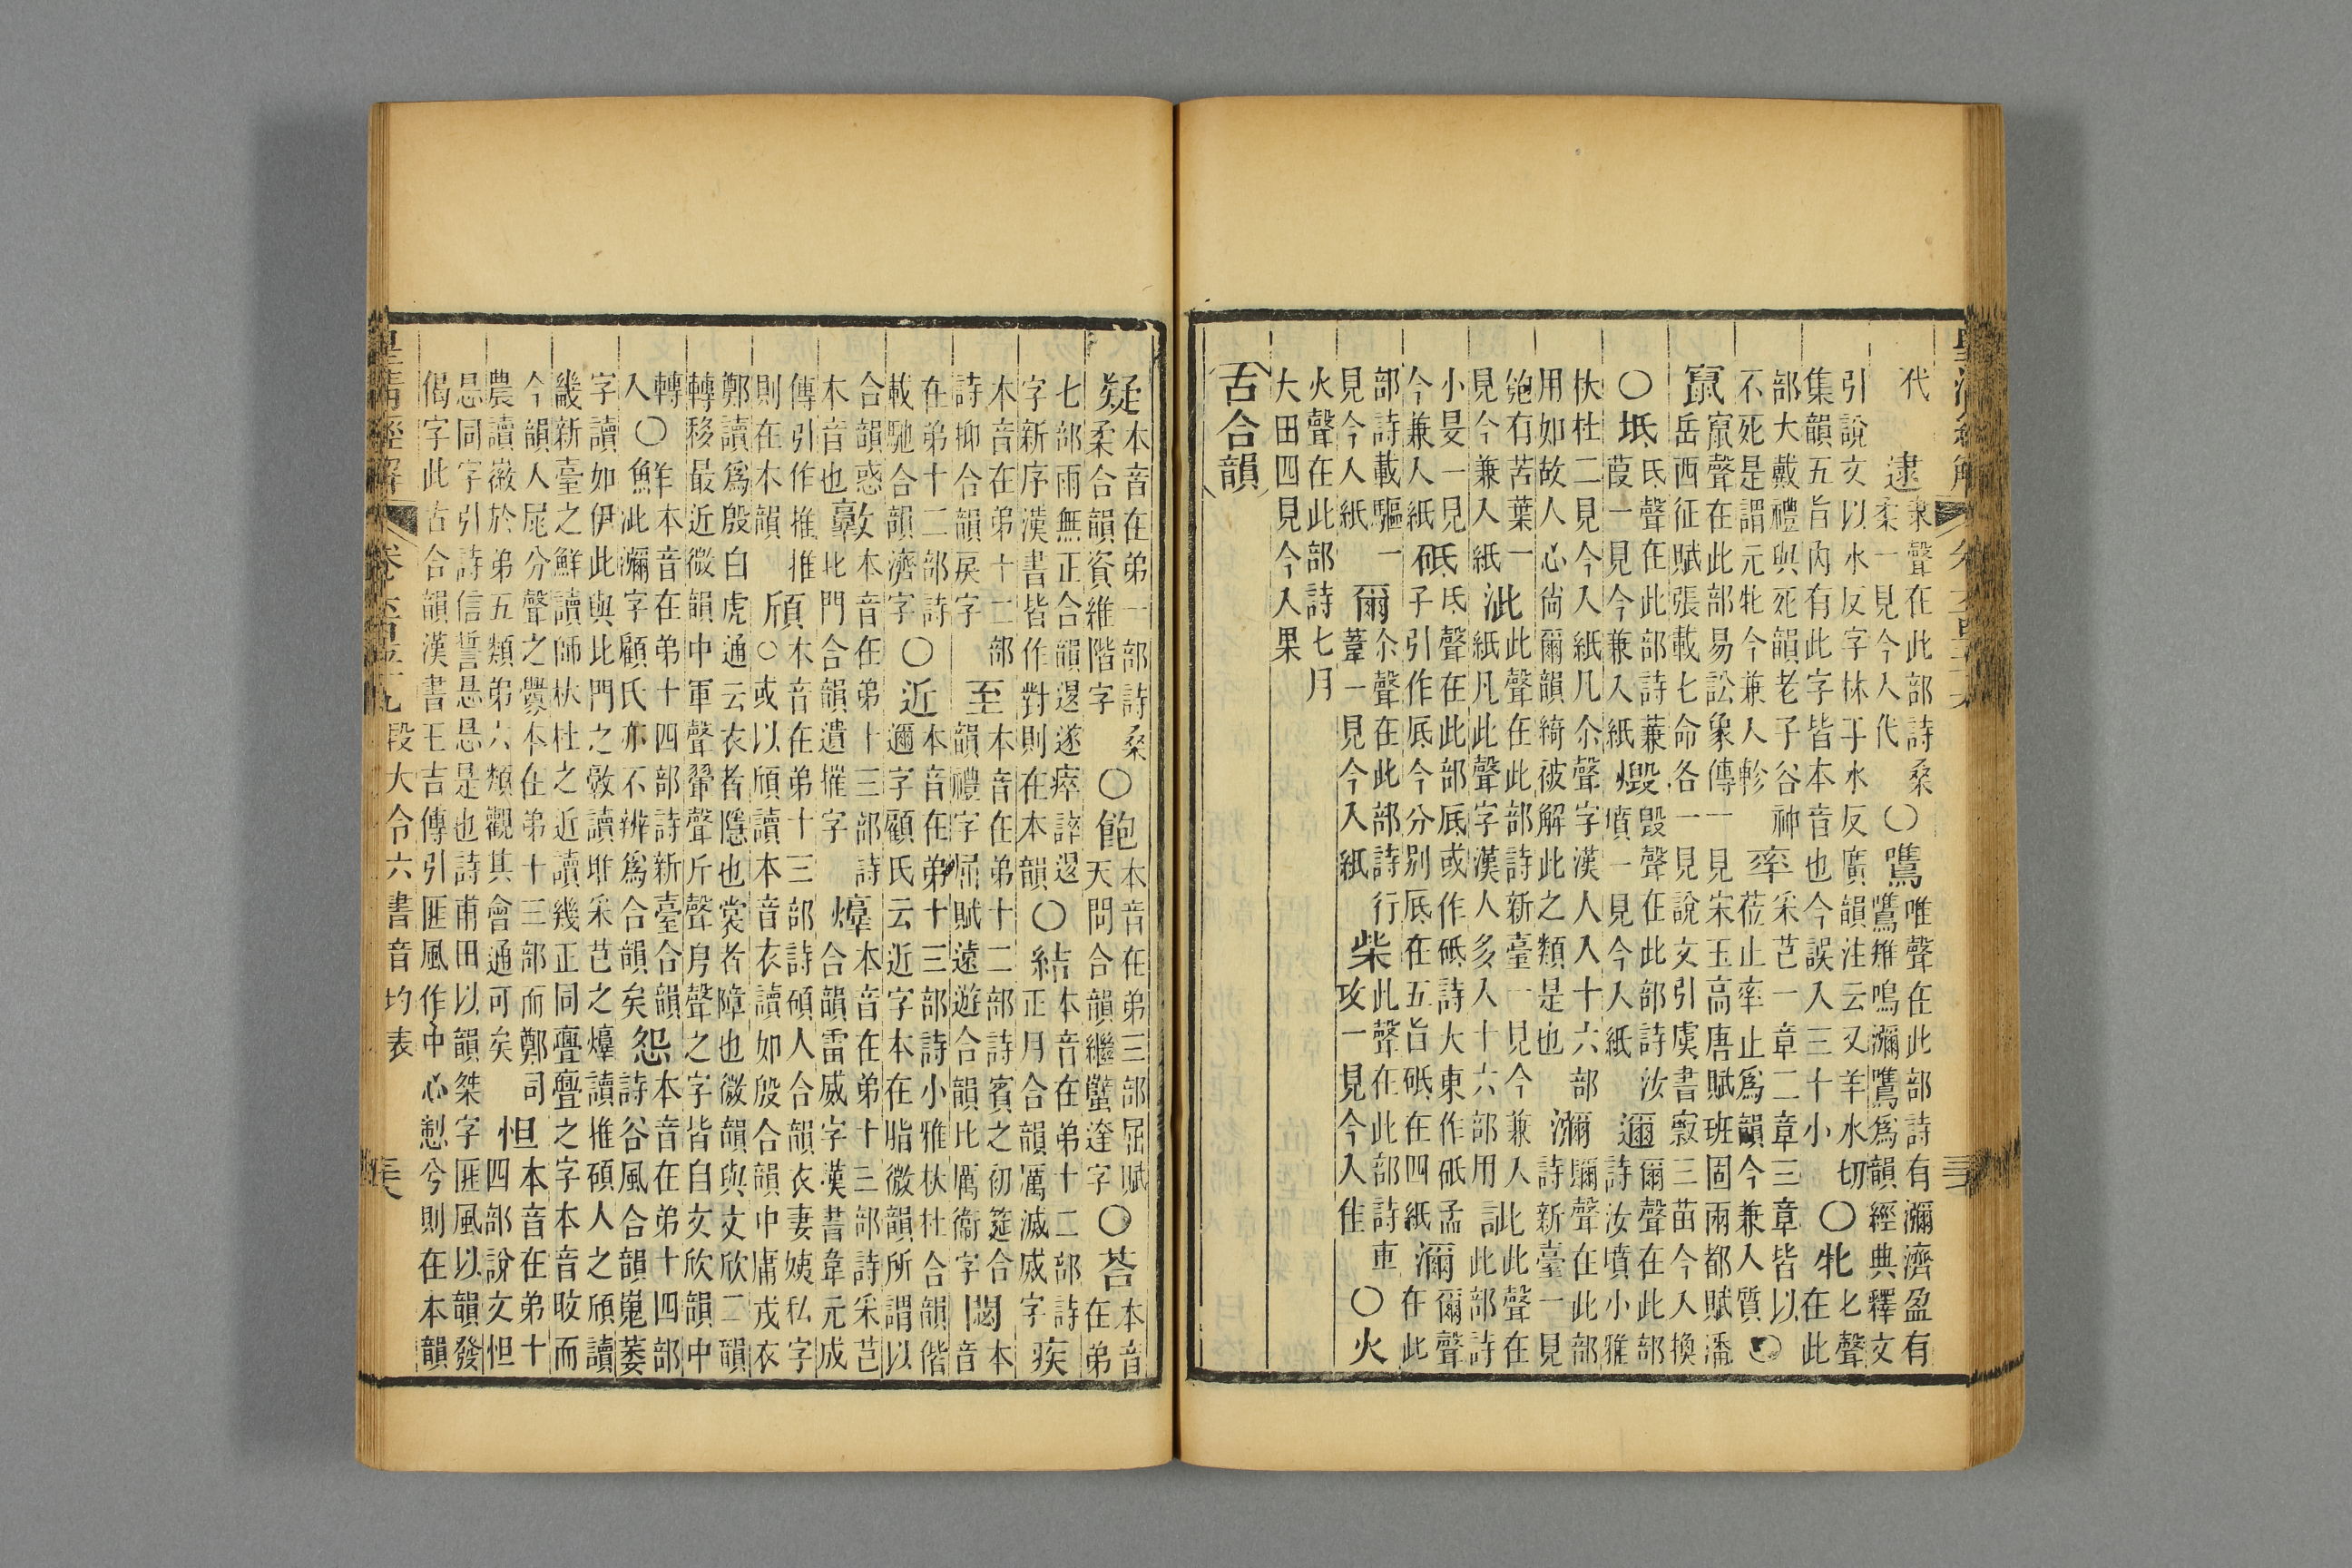 代
逮 隶聲在此部詩桑
柔一見今入代
○鴺 唯聲在此部詩有瀰濟盈有
鷕雉鳴瀰鷕爲韻經典釋文
引說文以水反字林于水反廣韻注云又羊水切
集韻五旨內有此字皆本音也今誤入三十小
○牝 匕聲在此
部大戴禮與死韻老子谷神
不死是謂元牝今兼入軫
采芑一章二章三章皆以
莅止率止爲韻今兼入質
竄 竄聲在此部易訟象傳一見宋玉高唐賦班固兩都賦潘
岳西征賦張載七命各一見說文引虞書㝮三苗今入換
○坻 氐聲在此部詩蒹
葭一見今兼入紙
燬 毀聲在此部詩汝
墳一見今入紙
邇 爾聲在此部
詩汝墳小雅
杕杜二見今入紙凡尒聲字漢人入十六部
用如故人心尙爾韻綺被解此之類是也
瀰 彌聲在此部
詩新臺一見
匏有苦葉一
見今兼入紙
泚 此聲在此部詩新臺一見今兼入
紙凡此聲字漢人多入十六部用
訿 此聲在
此部詩
小旻一見
今兼入紙
砥 氐聲在此部底或作砥詩大東作砥孟
子引作底今分別底在五旨砥在四紙
瀰 爾聲
在此
部詩載驅一
見今入紙
爾 尒聲在此部詩行
葦一見今入紙
柴 此聲在此部詩車
攻一見今入佳
○火
火聲在此部詩七月
大田四見今入果
古合韻
疑 本音在弟一部詩桑
柔合韻資維階字
○飽 本音在弟三部屈賦
天問合韻繼蠥達字
○荅 本音
在弟
七部雨無正合韻退遂瘁誶退
字新序漢書皆作對則在本韻
○結 本音在弟十二部詩
正月合韻厲滅威字
疾
本音在弟十二部
詩抑合韻戾字
至 本音在弟十二部詩賓之初筵合
韻禮字屈賦遠遊合韻比厲衞字
閟 本
音
在弟十二部詩
載馳合韻濟字
○近 本音在弟十三部詩小雅杕杜合韻偕
邇字顧氏云近字本在脂微韻所謂以
合韻惑
本音也
敦 本音在弟十三部詩
北門合韻遺摧字
焞 本音在弟十三部詩采芑
合韻雷威字漢書韋元成
傳引作推推
則在本韻
頎 本音在弟十三部詩碩人合韻衣妻姨私字
○或以頎讀本音衣讀如殷合韻中庸戎衣
鄭讀爲殷白虎通云衣者隱也裳者障也微韻與文欣二韻
轉移最近微韻中軍聲翬聲斤聲㐆聲之字皆自文欣韻中
轉
入
○鮮 本音在弟十四部詩新臺合韻
泚瀰字顧氏亦不辨爲合韻矣
怨 本音在弟十四部
詩谷風合韻嵬萎
字讀如伊此與比門之敦讀堆采芑之焞讀推碩人之頎讀
幾新臺之鮮讀師杕杜之近讀幾正同亹亹之字本音改而
今韻人尾分聲之釁本在弟十三部而鄭司
農讀徽於弟五類弟六類觀其會通可矣
怛 本音在弟十
四部說文怛
㤅同字引詩信誓㤅㤅是也詩甫田以韻桀字匪風以韻發
偈字此古合韻漢書王吉傳引匪風作中心㥿兮則在本韻
皇淸經解
段大令六書音均表